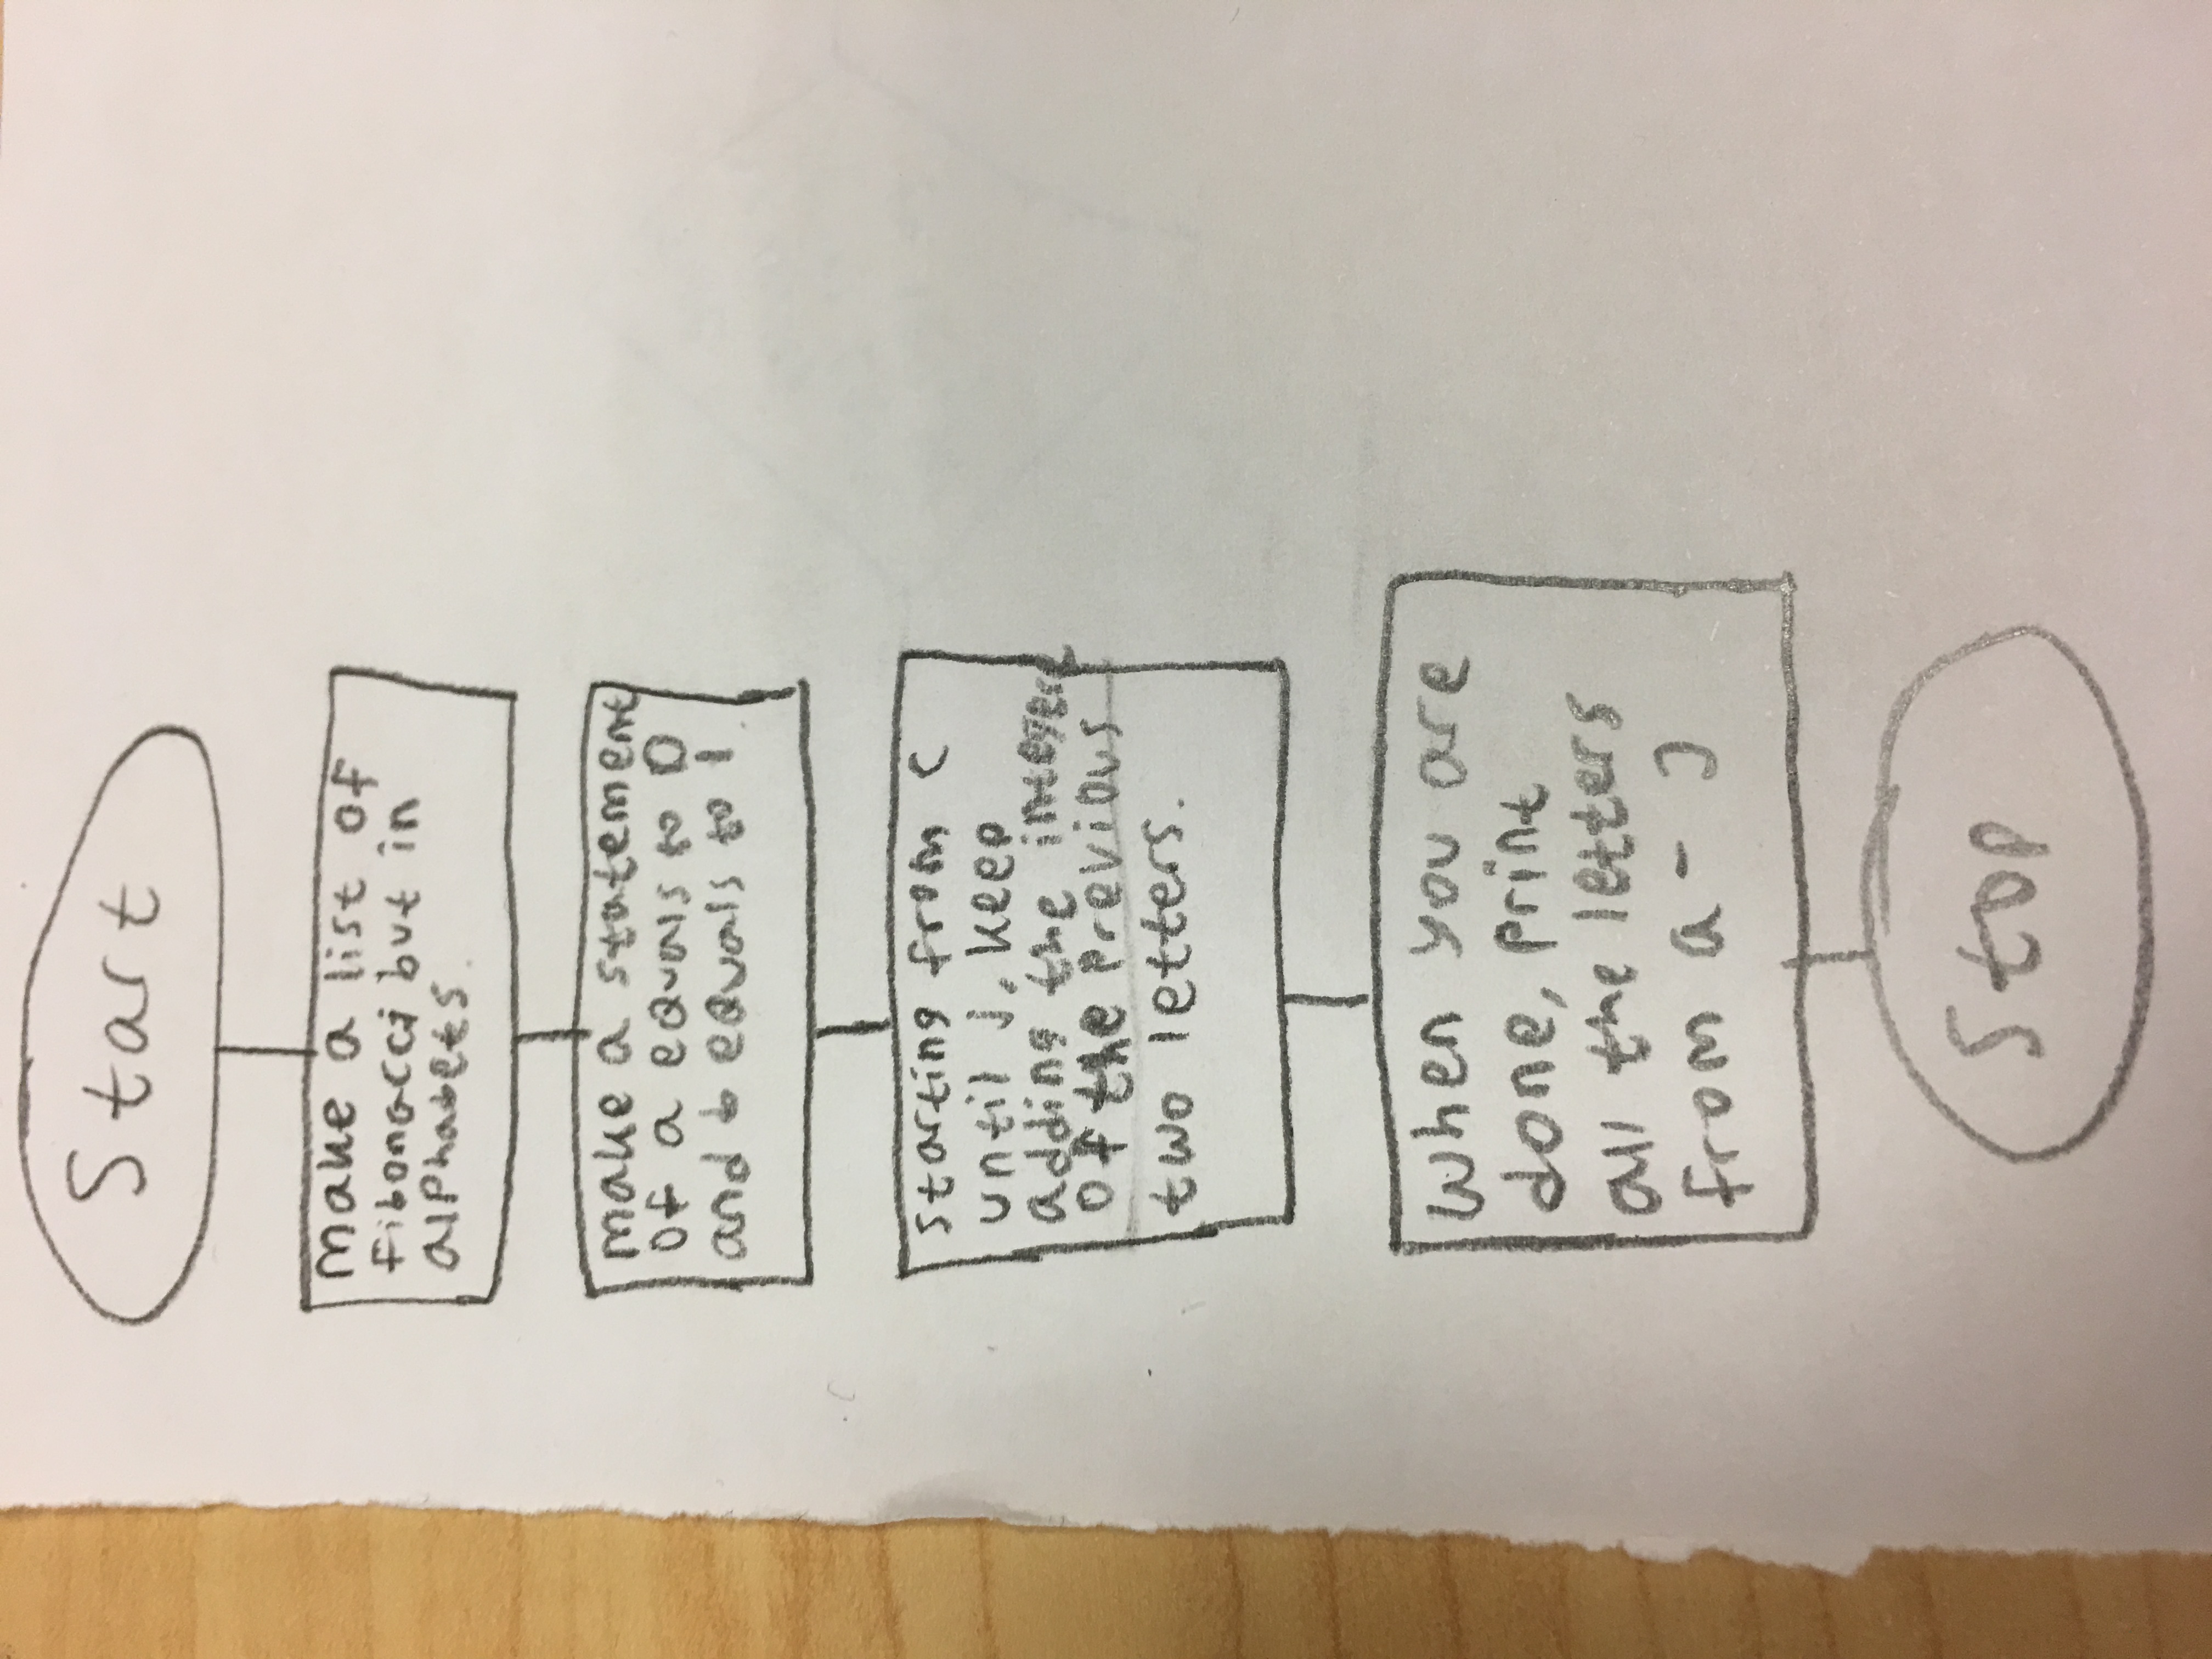 Start
make a list of
fibonacci but in
alphabets.
make a statement
of a equals to 0
and b equals to 1.
starting from c
until j, keep
adding the integers
of the previous
two letters.
When you are
done, print
all the letters
from a - J
Stop